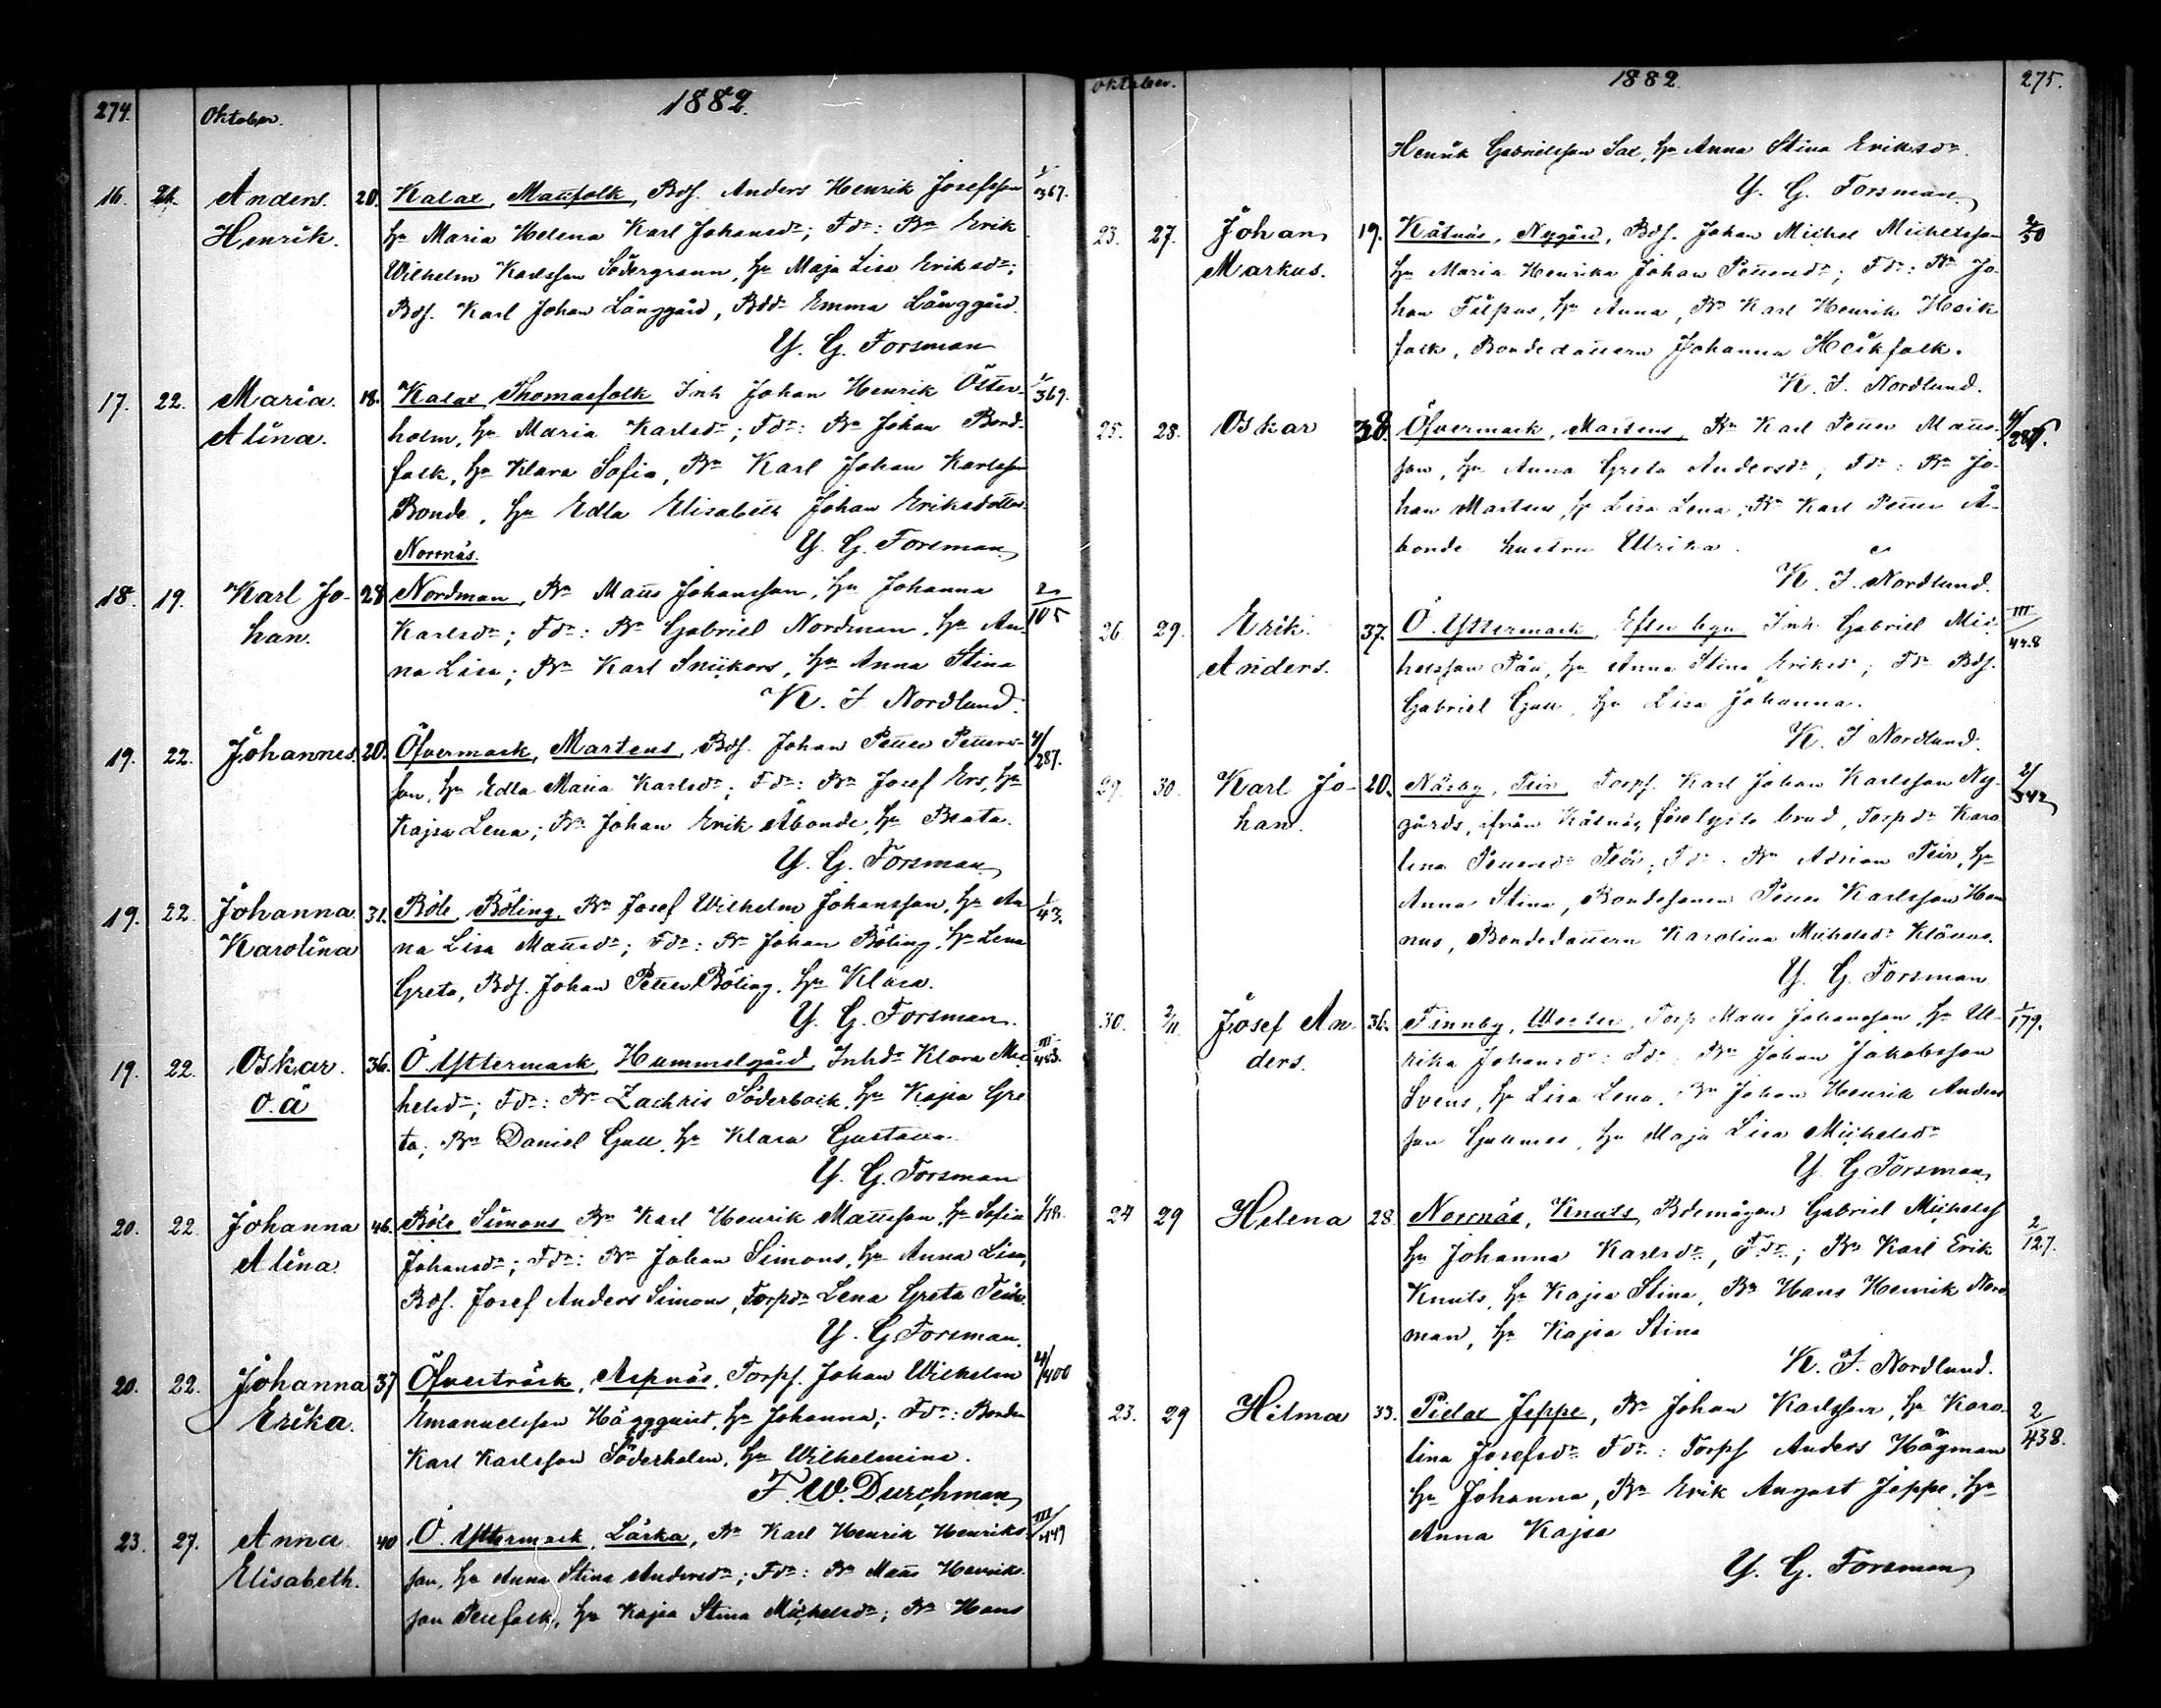 274. Oktober. 1882.
16. 21. Anders 20. Kalax, Mattfolk, Bds. Anders Henrik Josefsson 1/367.
Henrik. hu Maria Helena Karl Johansdr; Fdr: Bn Erik
Wilhelm Karlsson Södergrann, hu Maja Lisa Eriksdr;
Bds. Karl Johan Långgård, Bdd. Emma Långgård.
Y. G. Forsman
17. 22. Maria 18. Kalax, Thomasfolk Inh Johan Henrik Öster- 1/369.
Alina. holm, hu Maria Karlsdr; Fdr: Bn Johan Bond-
folk, hu Klara Sofia, Bn Karl Johan Karlsson
Bonde, hu Edla Elisabeth Johan Eriksdotter
Norrnäs. Y. G. Forsman
18. 19. Karl Jo- 28 Nordman, Bn Matts Johansson, hu Johanna 2/105
han. Karlsdr; Fdr: Bn Gabriel Nordman, hu An-
na Lisa; Bn Karl Snickors, hu Anna Stina
K. J. Nordlund.
19. 22. Johannes. 20. Öfvermark, Martens, Bds. Johan Petter Petters- 4/287.
son, hu Edla Maria Karlsdr; Fdr: Bn Josef Ers, hu
Kajsa Lena; Bn Johan Erik Åbonde, hu Beata.
Y. G. Forsman
19. 22. Johanna 31. Böle, Böling, Bn Josef Wilhelm Johansson, hu An- 1/43.
Karolina na Lisa Mattsdr; Fdr: Bn Johan Böling, hu Lena
Greta, Bds. Johan Petter Böling, hu Klara.
Y. G. Forsman.
19. 22. Oskar. 36. Ö. Yttermark, Hummelgård, Inhdr Klara Mic- III/483.
o. ä helsdr; Fdr: Bn Zachris Söderback, hu Kajsa Gre
ta; Bn Daniel Gull, hu Klara Gustava.
Y. G. Forsman
20. 22. Johanna 46. Böle Simons Bn Karl Henrik Mattsson, hu Sofia
Alina. Johansdr; Fdr: Bn Johan Simons, hu Anna Lisa,
Bds. Josef Anders Simons, Torpdr Lena Greta Teir.
Y. G. Forsman.
20. 22. Johanna 37 Öfverträsk, Aspnäs, Torps. Johan Wilhelm 4/400
Erika. Emanuelsson Häggquist, hu Johanna; Fdr: Bonden
Karl Karlsson Söderholm, hu Wilhelmina.
F. W. Durchman
23. 27. Anna 40 Ö. Yttermark, Lärka, Bn Karl Henrik Henriks- III/449
Elisabeth. son, hu Anna Stina Andersdr; Fdr: Bn Matts Henriks-
son hu Kajsa Stina Michelsdr; Bn Hans
Oktober. 1882. 275.
Henrik Gabrielsson Sax, hu Anna Stina Eriksdr.
Y. G. Forsman
23. 27. Johan 19. Kåtnäs, Nygård, Bds. Johan Michel Michelsson 2/50
Markus. hu Maria Henrika Johan Pettersdr; Fdr: Bn Jo-
han Tålpus, hu Anna, Bn Karl Henrik Heik
falk, Bondedottern Johanna Heikfolk.
K. J. Nordlund.
25. 28. Oskar 38. Öfvermark, Martens, Bn Karl Petter Matts- 4/287.
son, hu Anna Greta Andersdr, Fdr: Bn Jo-
han Martens, hu Lisa Lena, Bn Karl Petter Å-
bonde hustru Ulrika.
K. J. Nordlund.
26. 29. Erik 37. Ö. Yttermark, Efter byn Inh Gabriel Mic- III/448
Anders. helsson hu Anna Stina Eriksdr; Fdr Bds.
Gabriel Gull, hu Lisa Johanna.
K. J Nordlund.
29. 30. Karl Jo- 20. Närby, Teir Torps. Karl Johan Karlsson Ny- 2/342
han. gårds, ifrån Kåtnäs, förelyste brud, Torpdr Karo
lina Pettersdr Teir; Fdr: Bn Adrian Teir, hu
Anna Stina, Bondesonen Petter Karlsson Han
nus, Bondedottern Karolina Michelsdr Klåvus.
Y. G. Forsman
30. 2/11 Josef An- 36. Finnby, Wester, Torp Matts Johansson, hu Ul- 1/179.
ders. rika Johansdr; Fdr: Bn Johan Jakobsson
Svens, hu Lisa Lena, Bn Johan Henrik Anders
son Gullmes, hu Maja Lisa Michelsdr
Y. G. Forsman
24 29 Helena 28 Norrnäs, Knuts, Bdemågen Gabriel Michels 2/127.
hu Johanna Karlsdr, Fdr; Bn Karl Erik
Knuts, hu Kajsa Stina, Bn Hans Henrik Nord
man, hu Kajsa Stina
K. J. Nordlund.
23. 29 Hilma 33. Pielax Jeppe, Bn Johan Karlsson, hu Karo- 2/438.
lina Josefsdr Fdr: Torps Anders Högman
hu Johanna, Bn Erik August Jeppe, hu
Anna Kajsa
Y. G. Forsman